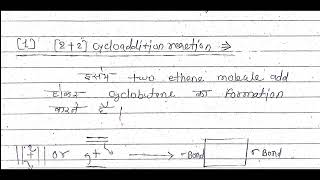 [1] [2+2] cycloaddition reaction ⇒
इसमे two ethene molecule add
होकर cyclobutene का formation
करते है |
|| + || or = + = → r Bond □ r Bond